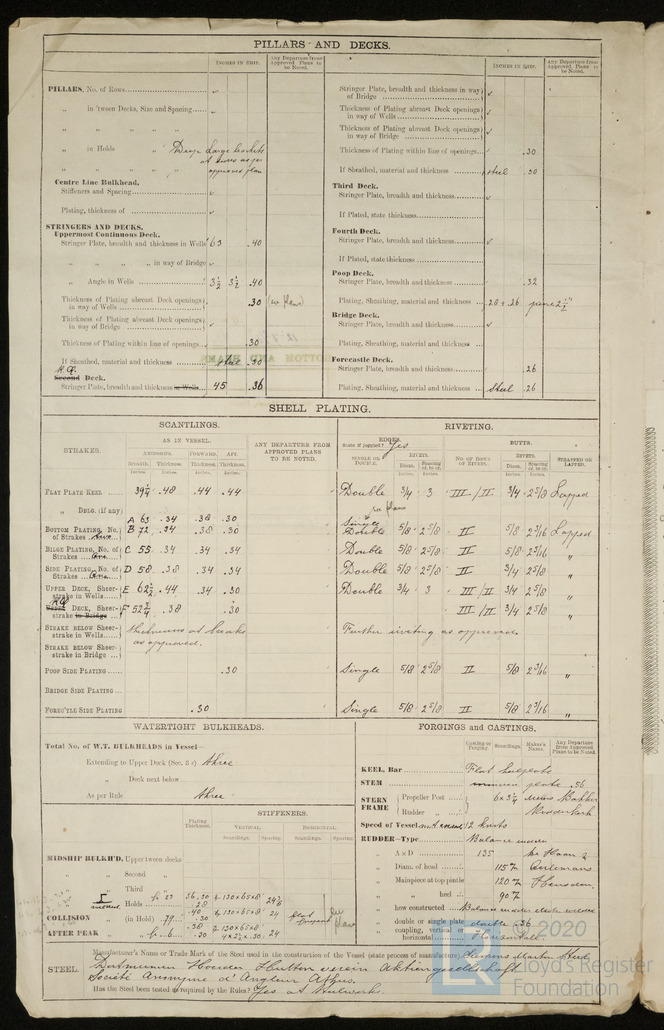 PILLARS AND DECKS.
INCHES IN SHIP.
Any Departure from Approved Plans to be Noted.
PILLARS, No. of Rows
„ in 'tween Decks, Size and Spacing
„ in Holds „ Deep Large brackets
at ends as per
approved plan
Centre Line Bulkhead.
Stiffeners and Spacing
Plating, thickness of
STRINGERS AND DECKS.
Uppermost Continuous Deck.
Stringer Plate, breadth and thickness in Wells 63 .40
„ „ „ in way of Bridge
„ Angle in Wells 3½ 3½ .40
Thickness of Plating abreast Deck openings in way of Wells .30
Thickness of Plating abreast Deck openings in way of Bridge
Thickness of Plating within line of openings .30
If Sheathed, material and thickness steel .30
Second Deck.
Stringer Plate, breadth and thickness in Wells 45 .36
INCHES IN SHIP.
Any Departure from Approved Plans to be Noted.
Stringer Plate, breadth and thickness in way of Bridge
Thickness of Plating abreast Deck openings in way of Wells
Thickness of Plating abreast Deck openings in way of Bridge
Thickness of Plating within line of openings .30
If Sheathed, material and thickness steel .30
Third Deck.
Stringer Plate, breadth and thickness
If Plated, state thickness
Fourth Deck.
Stringer Plate, breadth and thickness
If Plated, state thickness
Poop Deck.
Stringer Plate, breadth and thickness .32
Plating, Sheathing, material and thickness .28 + .26 pine 2½"
Bridge Deck.
Stringer Plate, breadth and thickness
Plating, Sheathing, material and thickness
Forecastle Deck.
Stringer Plate, breadth and thickness .26
Plating, Sheathing, material and thickness Steel .26
SHELL PLATING.
SCANTLINGS.
RIVETING.
STRAKES.
AS IN VESSEL.
AMIDSHIPS. FORWARD. AFT.
Breadth. Thickness. Thickness. Thickness.
Inches. Inches. Inches. Inches.
ANY DEPARTURE FROM APPROVED PLANS TO BE NOTED.
EDGES.
State if joggled? Yes
SINGLE OR DOUBLE.
RIVETS.
Diam. Spacing cr. to cr.
Inches. Inches.
BUTTS.
NO. OF ROWS OF RIVETS.
RIVETS.
Diam. Spacing cr. to cr.
Inches. Inches.
STRAPPED OR LAPPED.
FLAT PLATE KEEL 39¼ .48 .44 .44 Double 3/4 3 III/II 3/4 2 5/8 Lapped
„ DBLG. (if any)
A 63 .34 .38 .30 Single
BOTTOM PLATING, No. of Strakes B 72 .34 .38 .30 Double 5/8 2 5/8 II 5/8 2 3/16 Lapped
BILGE PLATING, No. of Strakes One C 55 .34 .34 .34 Double 5/8 2 5/8 II 5/8 2 3/16 „
SIDE PLATING, No. of Strakes One D 58 .38 .34 .34 Double 5/8 2 5/8 II 3/4 2 5/8 „
UPPER DECK, Sheerstrake in Wells E 62½ .44 .34 .30 Double 3/4 3 III/II 3/4 2 5/8 „
DECK, Sheerstrake in Bridge F 52¾ .38 .30 III/II 3/4 2 5/8 „
STRAKE BELOW SHEERstrake in Wells thickness at breaks as approved. Further riveting as approved.
STRAKE BELOW SHEERstrake in Bridge
POOP SIDE PLATING .30 Single 5/8 2 5/8 II 5/8 2 3/16 „
BRIDGE SIDE PLATING
FOREC'TLE SIDE PLATING .30 Single 5/8 2 5/8 II 5/8 2 3/16 „
WATERTIGHT BULKHEADS.
Total No. of W.T. BULKHEADS in Vessel—
Extending to Upper Deck (Sec. 3 c) three
„ Deck next below
As per Rule three
STIFFENERS.
Plating Thickness.
VERTICAL. HORIZONTAL.
Scantlings. Spacing. Scantlings. Spacing.
MIDSHIP BULKH'D, Upper 'tween decks
„ „ Second „
„ „ Third
„ „ Holds
COLLISION „ (in Hold)
AFTER PEAK „
FORGINGS and CASTINGS.
Casting or Forging.
Scantlings.
Maker's Name.
Any Departure from Approved Plans to be Noted.
KEEL, Bar Flat keelplate
STEM plate .56
STERN FRAME
Propeller Post 6 x 3¼
Rudder „
Speed of Vessel 12 knots
RUDDER—Type Balance
„ A x D 135
„ Diam. of head 115
„ Mainpiece at top pintle 120
„ „ heel 90
„ how constructed Balance
„ double or single plate double .36
„ coupling, vertical or horizontal Horizontal
STEEL.
Manufacturer's Name or Trade Mark of the Steel used in the construction of the Vessel (state process of manufacture) Siemens Martin Steel
Dortmunder Hoerder Hutten verein Aktiengesellschaft.
Société Anonyme d'Angleur Athus.
Has the Steel been tested as required by the Rules? Yes at Steelworks.
© 2020
Lloyd's Register
Foundation